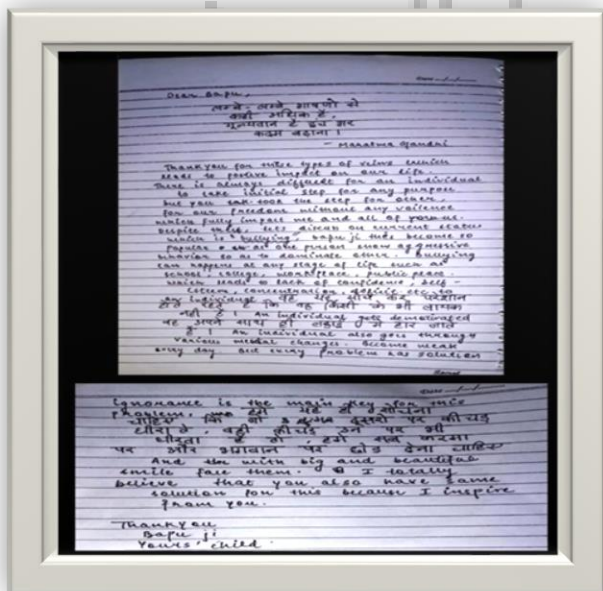 Dear Bapu,
लम्बे-लम्बे भाषणों से
कहीं अधिक है,
मूल्यवान है इंच भर
कदम बढ़ाना ।
- Mahatma Gandhi
Thankyou for these types of views which
leads to positive impact on our life.
There is always difficult for an individual
to take initial step for any purpose
but you took the step for other,
for our freedom without any voilence
which fully impact me and all of
Despite this, let's discuss on current status
which is "bullying", bapu ji this become so
popular one person show aggressive
behavior so as to dominate other. Bullying
can happens at any stage of life such as
school, college, workplace, public peace.
which leads to lack of confidence, self-
esteem, concentration, etc. to
an individual वह यह सोच कर परेशान
रहते है कि वह किसी के भी लायक
नहीं है । An individual gets demotivated
वह अपने साथ ही लड़ाई में हार जाते
है । An individual also goes through
various mental changes. Become weak
every day. But every problem has solution
ignorance is the main key for this
problem, हमे यह ही सोचना
चाहिए कि जो दूसरो पर कीचड़
वही कीचड़ उन पर भी
है हमे सब्र करना
पर और भगवान पर छोड़ देना चाहिए
And with big and beautiful
smile face them. I totally
believe that you also have same
solution for this because I inspire
from you.
Thankyou
Bapu ji
Yours' child.